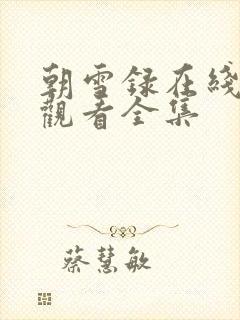 朝雪録在綫
觀看全集
蔡慧敏